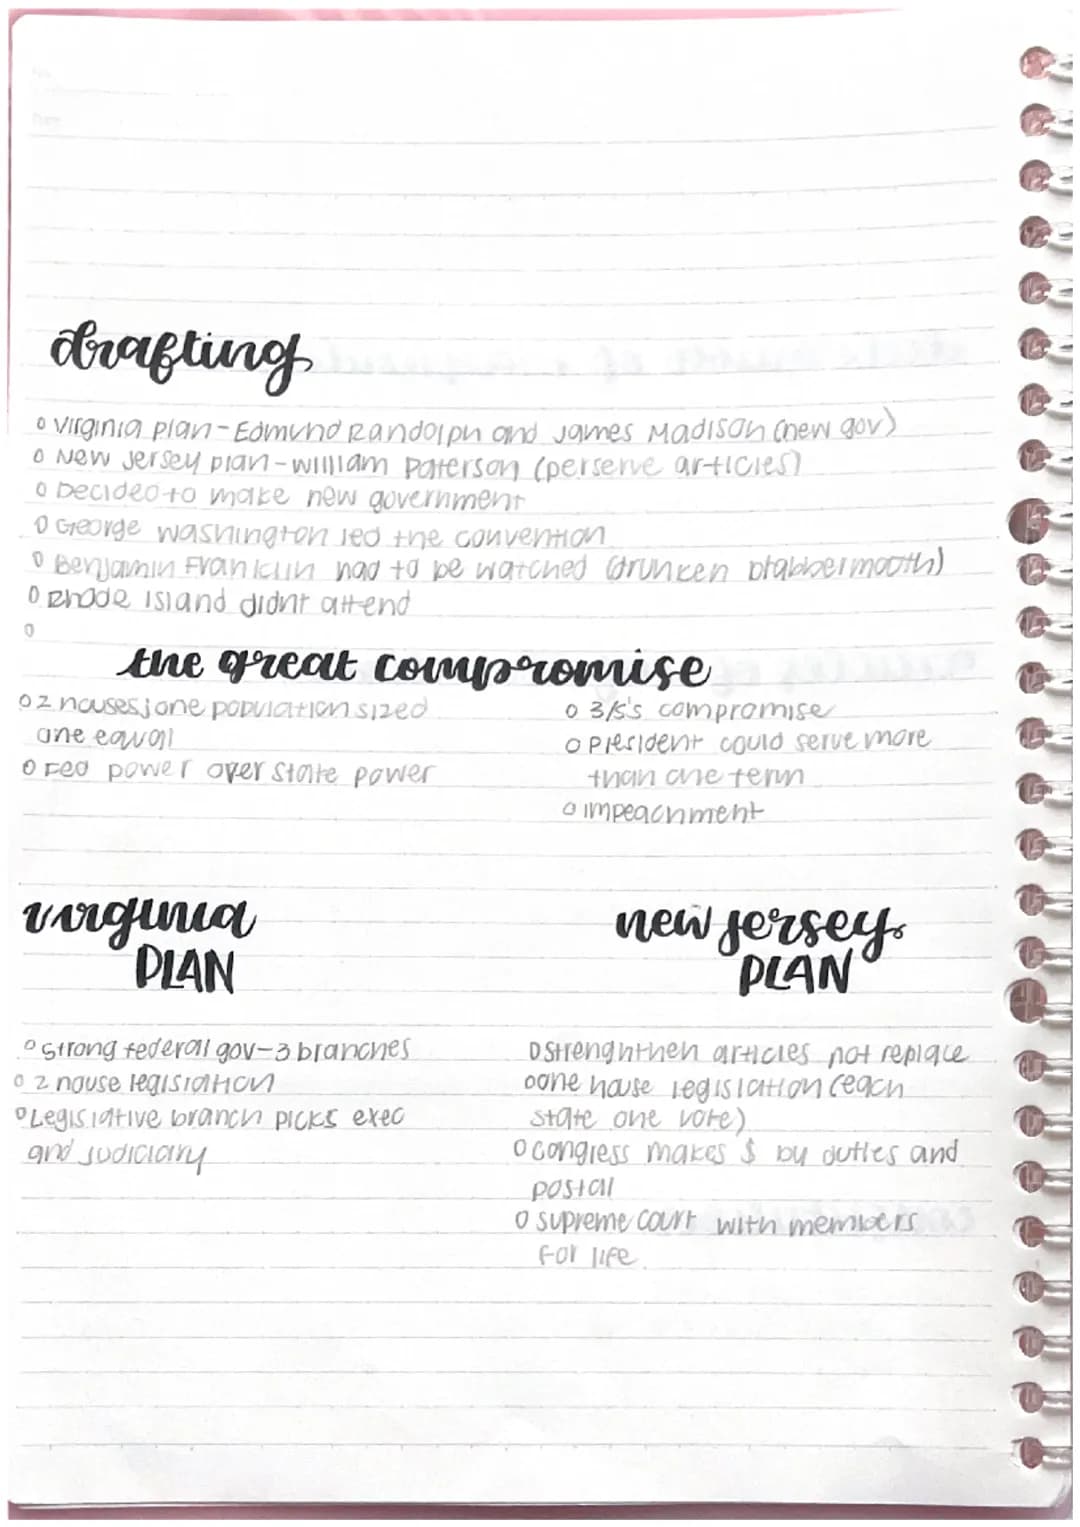 drafting
o Virginia plan - Edmund Randolph and James Madison (new gov)
o New Jersey plan - William Paterson (perserve articles)
o Decided to make new government
o George Washington led the convention
o Benjamin Franklin had to be watched (drunken blabbermooth)
o Rhode Island didnt attend
o
the great compromise
o 2 houses; one population sized
one equal
o Fed power over state power
o 3/5's compromise
o President could serve more
than one term
o impeachment
virginia
PLAN
o strong federal gov - 3 branches
o 2 house legislation
o Legislative branch picks exec
and judiciary
new jersey
PLAN
o strenghthen articles not replace
o one house legislation (each
state one vote)
o congress makes $ by duties and
postal
o supreme court with members
for life